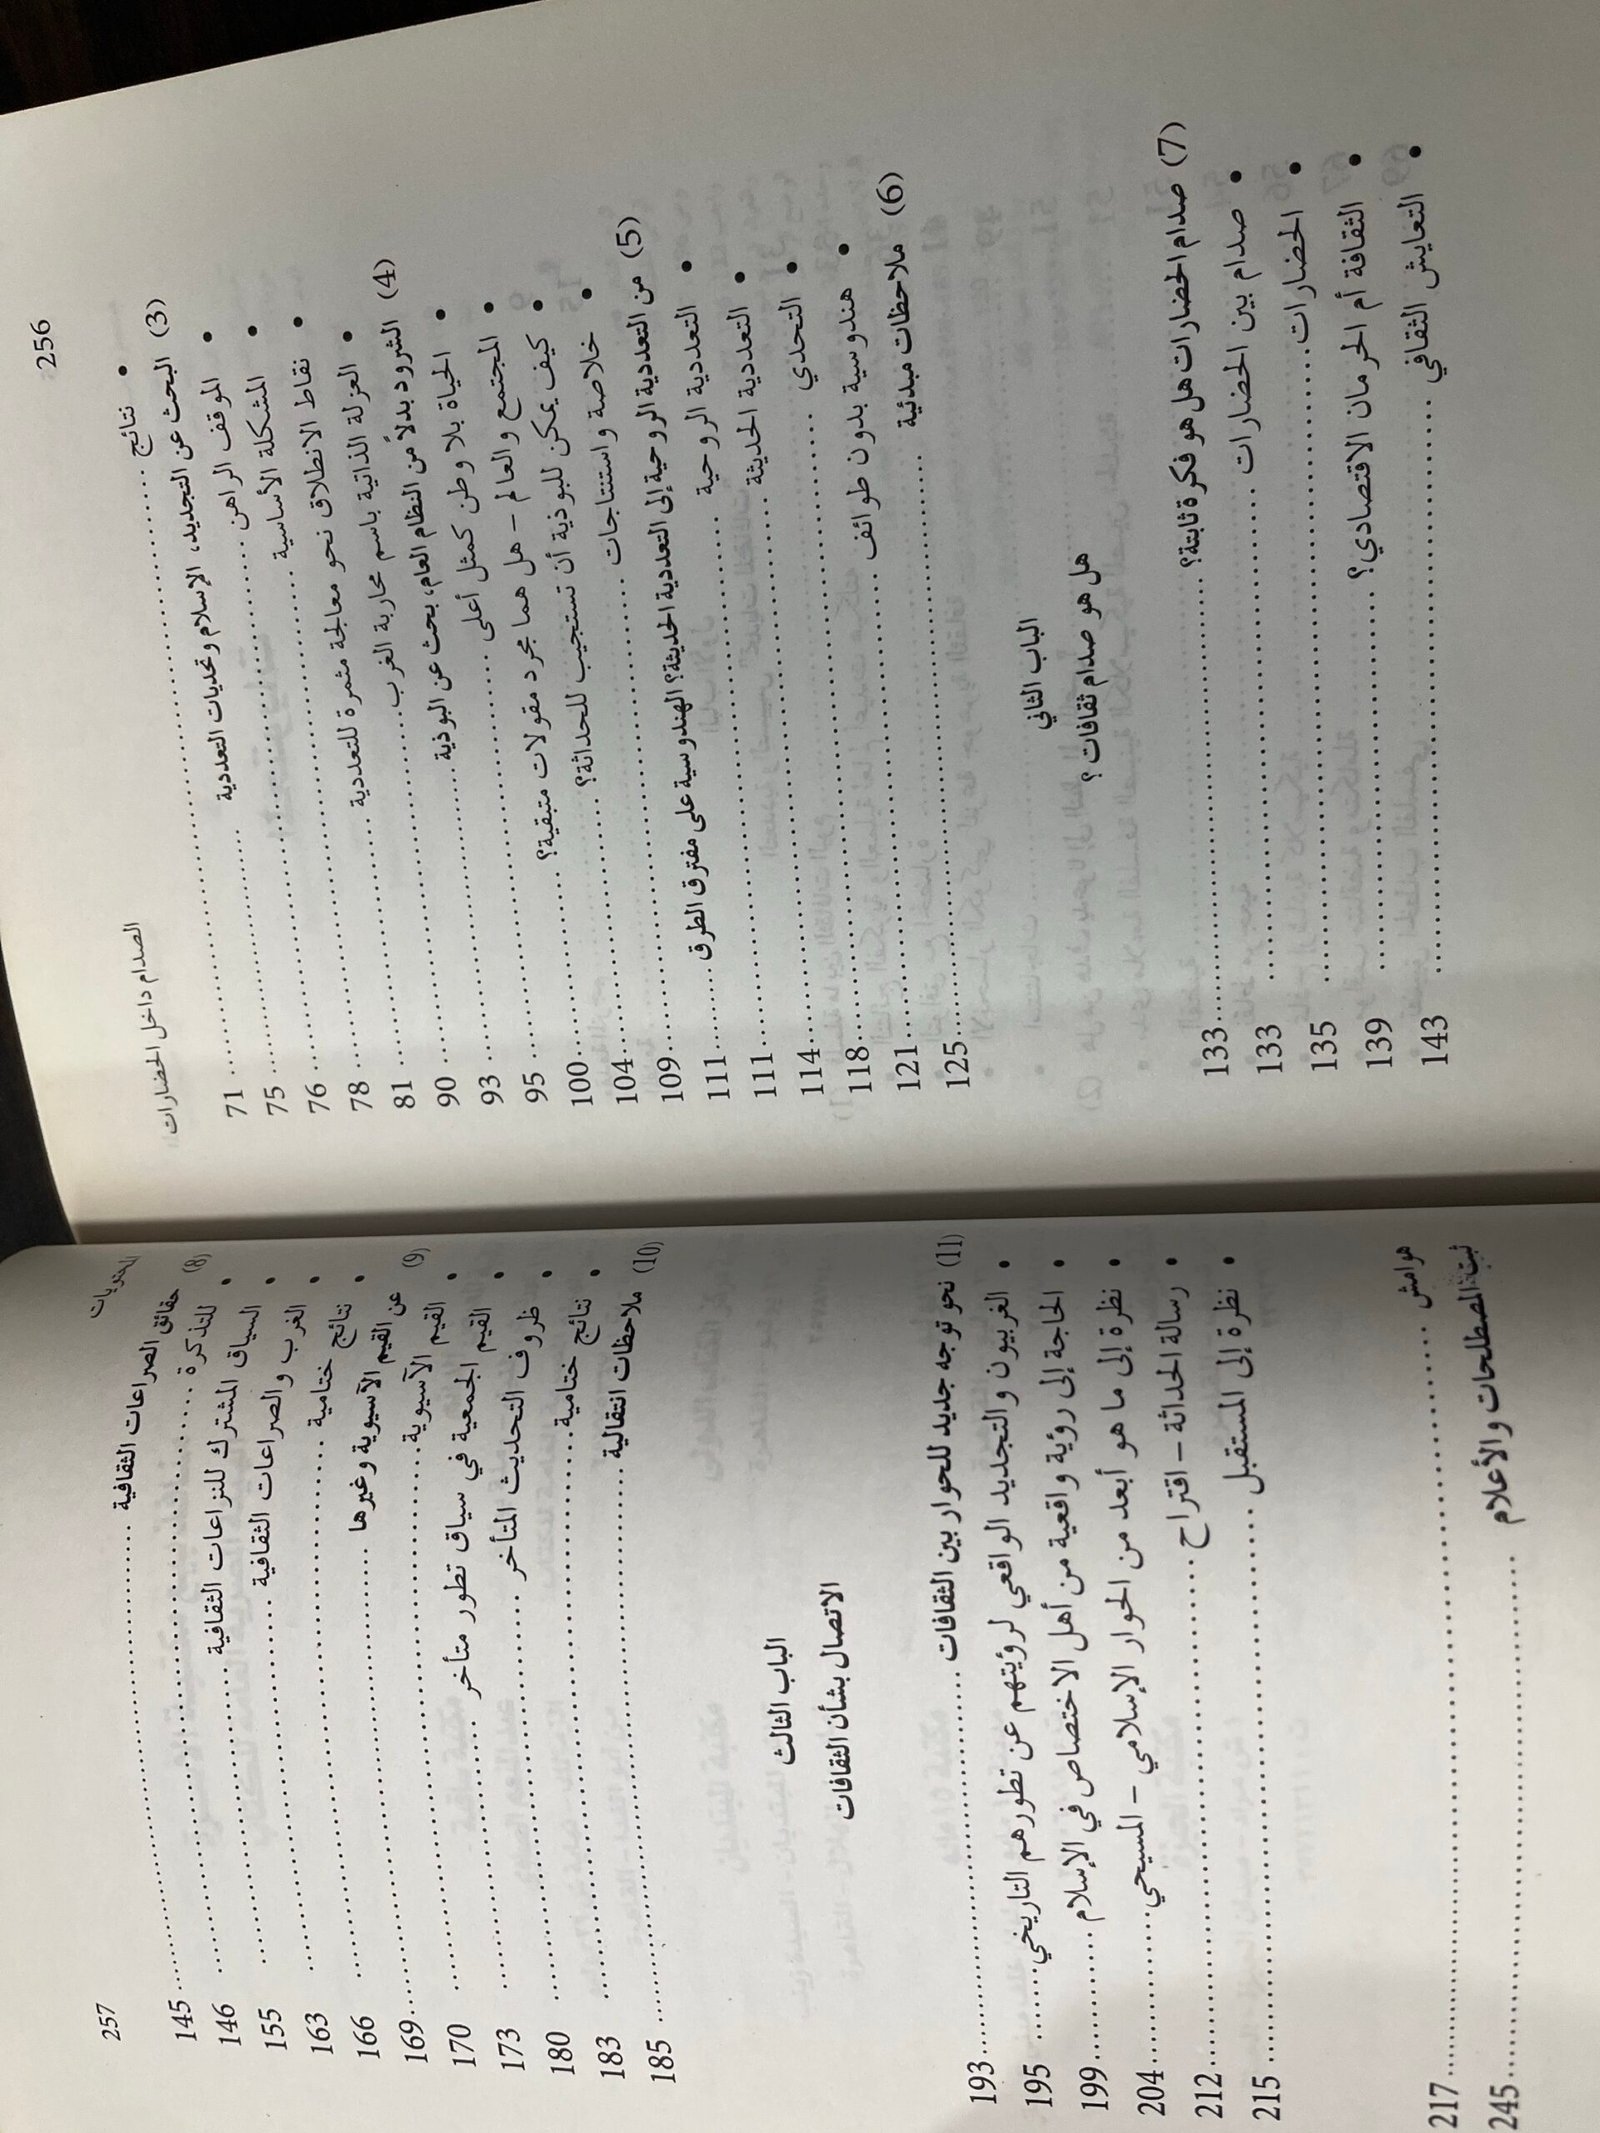 256
الصدام داخل الحضارات
• نتائج ........ 71
(3) البحث عن التجديد، الإسلام وتحديات التعددية ........ 75
• الموقف الراهن ........ 76
• المشكلة الأساسية ........ 78
• نقاط الانطلاق نحو معالجة مثمرة للتعددية ........ 81
• العزلة الذاتية باسم محاربة الغرب ........ 90
(4) الشرود بدلاً من النظام العام، بحث عن البوذية ........ 93
• الحياة بلا وطن كمثل أعلى ........ 95
• المجتمع والعالم - هل هما مجرد مقولات متبقية؟ ........ 100
• كيف يمكن للبوذية أن تستجيب للحداثة؟ ........ 104
• خلاصة واستنتاجات ........ 109
(5) من التعددية الروحية إلى التعددية الحديثة؟ الهندوسية على مفترق الطرق ........ 111
• التعددية الروحية ........ 111
• التعددية الحديثة ........ 114
• التحدي ........ 118
• هندوسية بدون طوائف ........ 121
(6) ملاحظات مبدئية ........ 125
الباب الثاني
هل هو صدام ثقافات؟
(7) صدام الحضارات هل هو فكرة ثابتة؟ ........ 133
• صدام بين الحضارات ........ 133
• الحضارات ........ 135
• الثقافة أم الحرمان الاقتصادي؟ ........ 139
• التعايش الثقافي ........ 143
المحتويات
257
(8) حقائق الصراعات الثقافية ........ 145
• للتذكرة ........ 146
• السياق المشترك للنزاعات الثقافية ........ 155
• الغرب والصراعات الثقافية ........ 163
• نتائج ختامية ........ 166
(9) عن القيم الآسيوية وغيرها ........ 169
• القيم الآسيوية ........ 170
• القيم الجمعية في سياق تطور متأخر ........ 173
• ظروف التحديث المتأخر ........ 180
• نتائج ختامية ........ 183
(10) ملاحظات انتقالية ........ 185
الباب الثالث
الاتصال بشأن الثقافات
(11) نحو توجه جديد للحوار بين الثقافات ........ 193
• الغربيون والتجديد الواقعي لرؤيتهم عن تطورهم التاريخي ........ 195
• الحاجة إلى رؤية واقعية من أهل الاختصاص في الإسلام ........ 199
• نظرة إلى ما هو أبعد من الحوار الإسلامي - المسيحي ........ 204
• رسالة الحداثة - اقتراح ........ 212
• نظرة إلى المستقبل ........ 215
هوامش ........ 217
ثبت المصطلحات والأعلام ........ 245